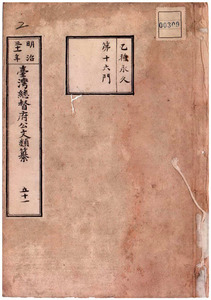 乙種永久
第十六門
明治
年
臺灣總督府公文類纂
五十一